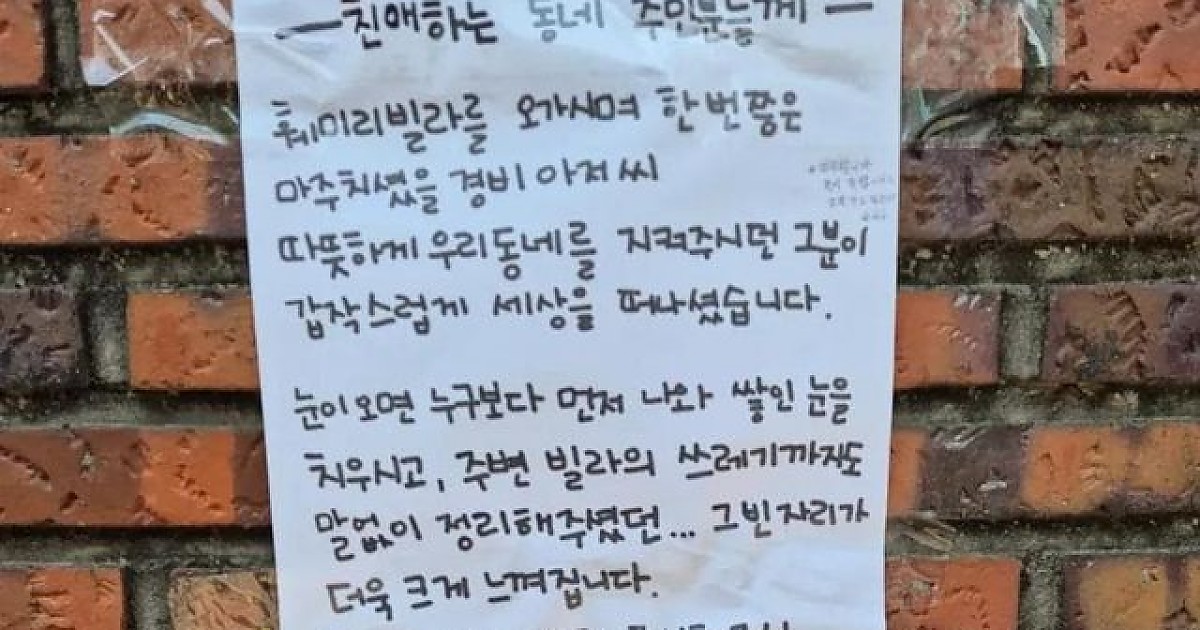 친애하는 동네 주민분들께
훼미리빌라를 오가시며 한 번쯤은
마주치셨을 경비 아저씨
따뜻하게 우리동네를 지켜주시던 그분이
갑작스럽게 세상을 떠나셨습니다.
눈이 오면 누구보다 먼저 나와 쌓인 눈을
치우시고, 주변 빌라의 쓰레기까지도
말없이 정리해주셨던... 그 빈자리가
더욱 크게 느껴집니다.